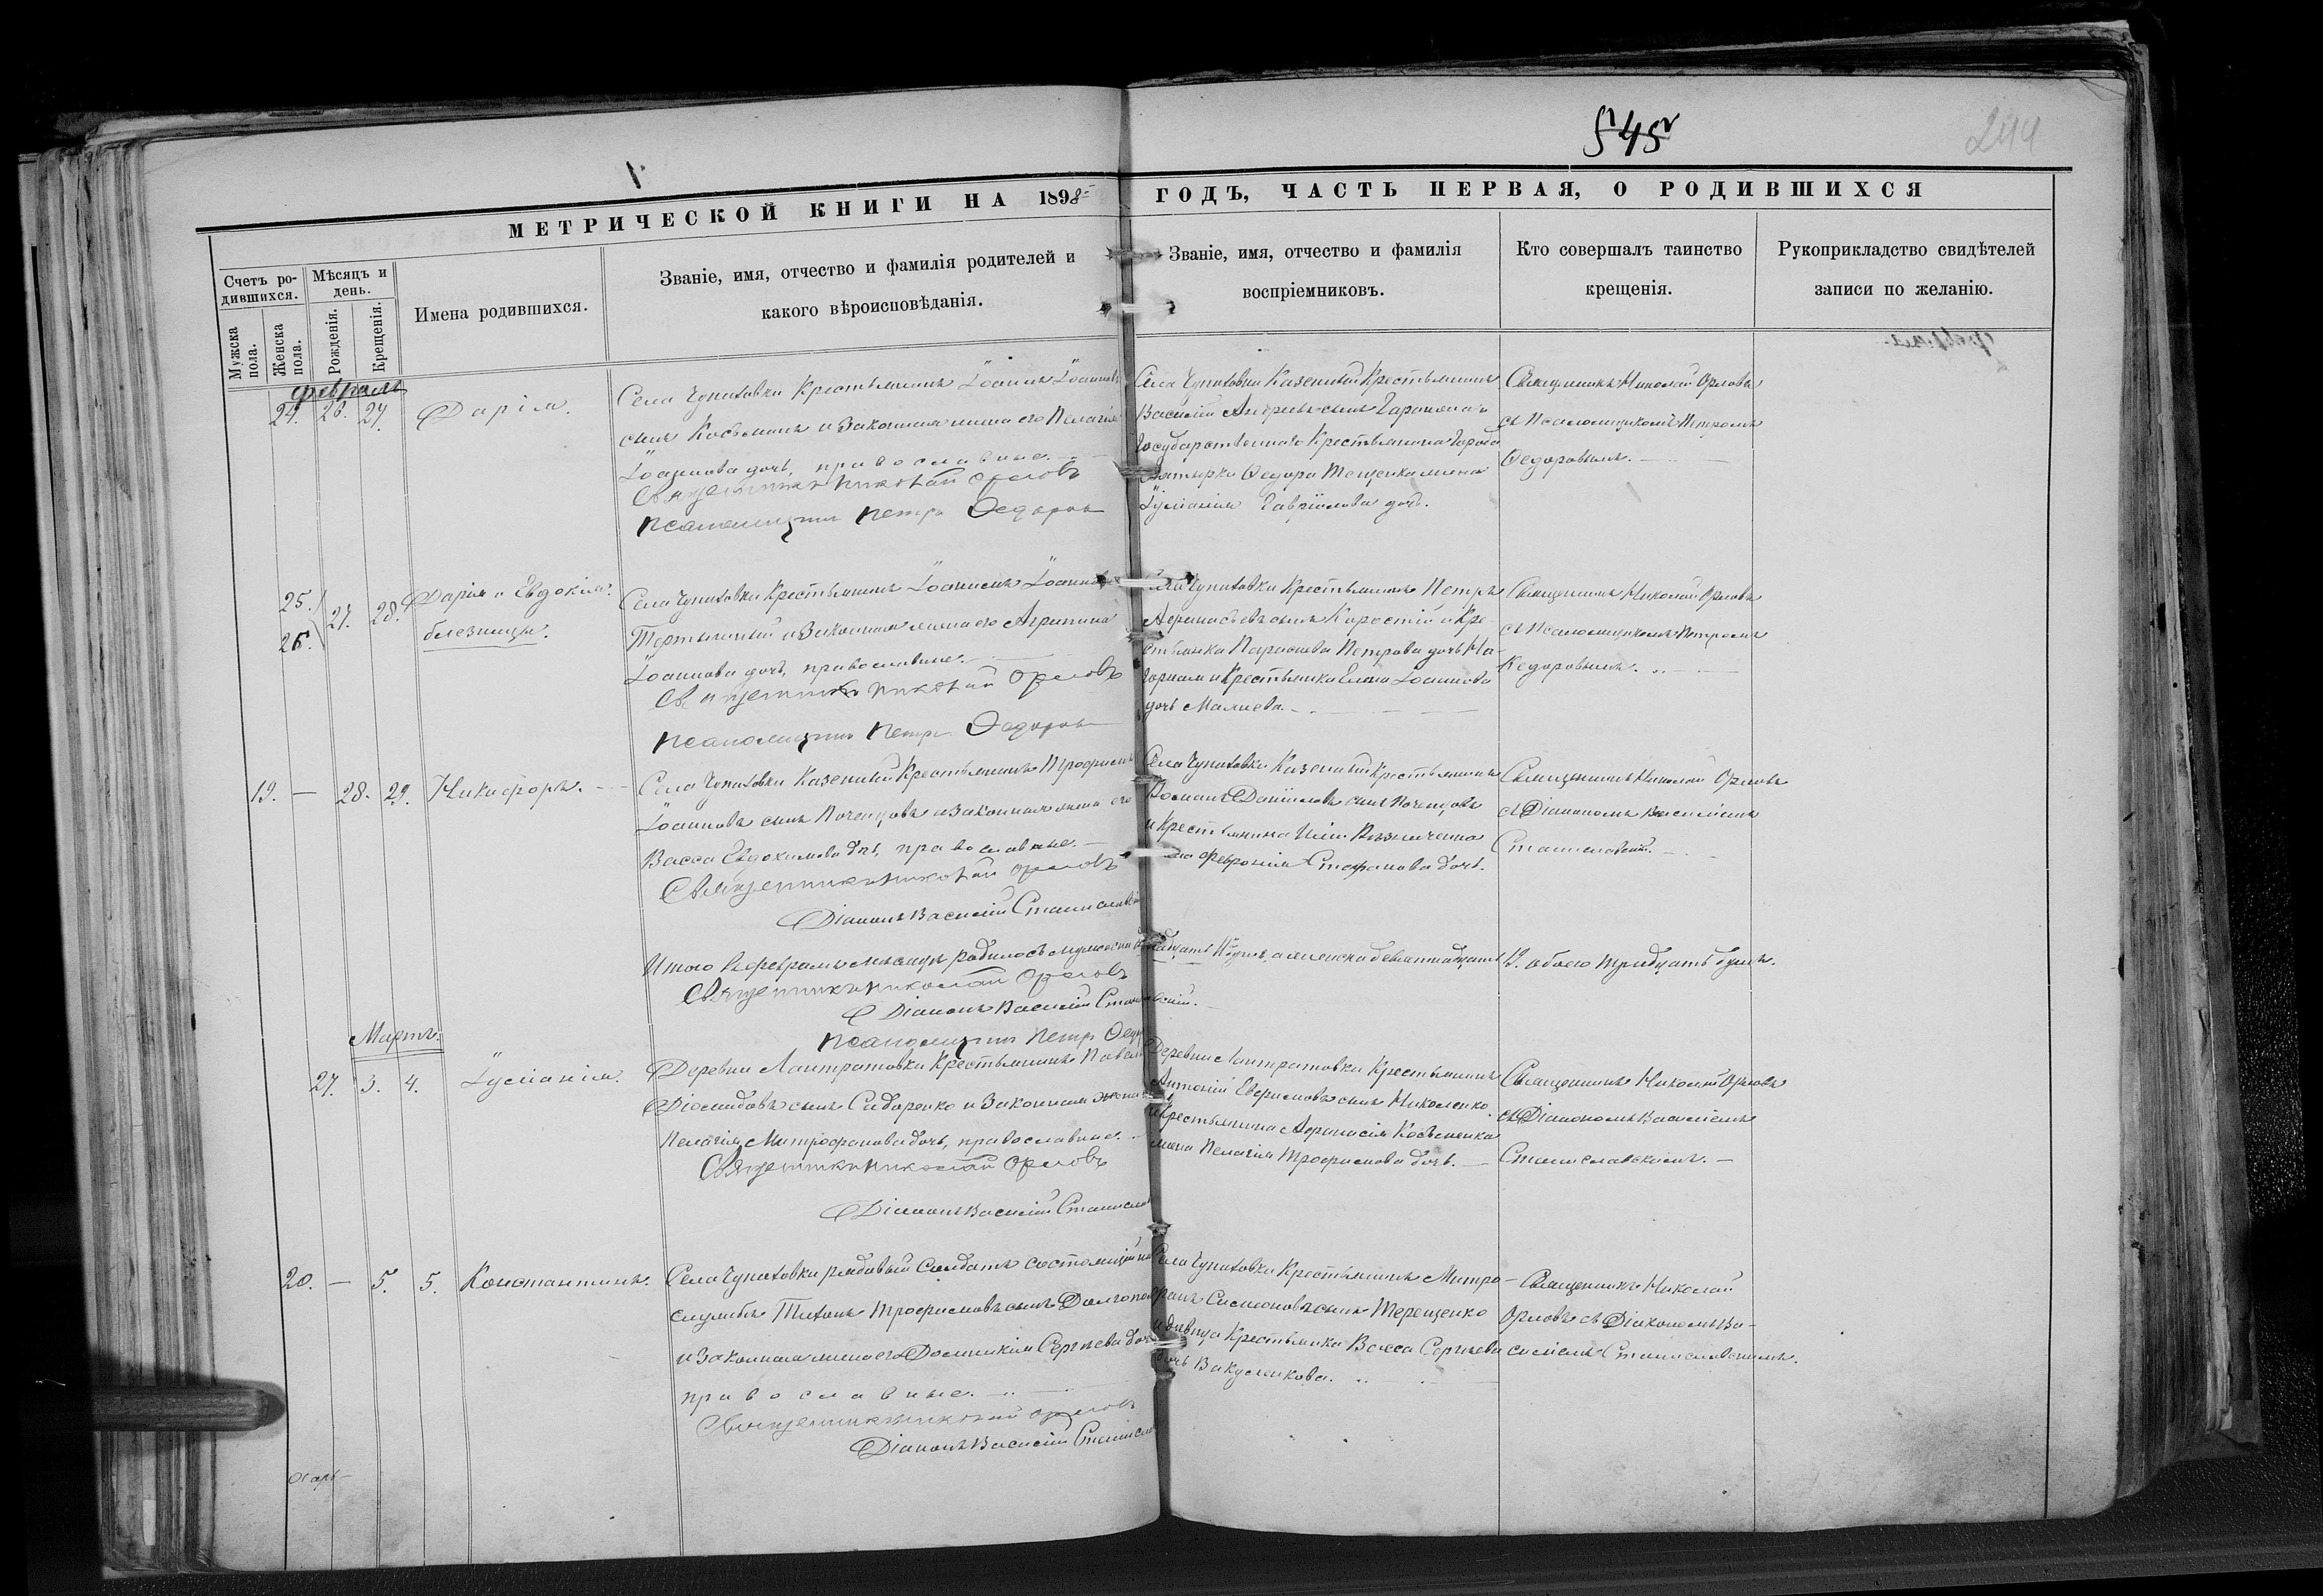 545
244
МЕТРИЧЕСКОЙ КНИГИ НА 1898 ГОДЪ, ЧАСТЬ ПЕРВАЯ, О РОДИВШИХСЯ
Счетъ ро-
дившихся.
Мужска
пола.
Женска
пола.
Мѣсяцъ и
день.
Рожденія.
Крещенія.
Имена родившихся.
Званіе, имя, отчество и фамилія родителей и
какого вѣроисповѣданія.
Званіе, имя, отчество и фамилія
воспріемниковъ.
Кто совершалъ таинство
крещенія.
Рукоприкладство свидѣтелей
записи по желанію.
февраль
24. 26. 27. Дарія.
Села Чупаховки Крестьянинъ Іоаннъ Іоанновъ
сынъ Косьманъ и Законная жена его Пелагія
Іоаннова дочь, православные.
Священникъ Николай Орловъ
Псаломщикъ Петръ Ѳедоровъ
Села Чупаховки Казенный Крестьянинъ
Василій Андреевъ сынъ
Государственнаго Крестьянина Города
Ахтырки Ѳедора Тещенка жена
Іуліанія Гавріилова дочь.
Священникъ Николай Орловъ
съ Псаломщикомъ Петромъ
Ѳедоровымъ.
25.
26. 27. 28. Дарія и Евдокія
близнецы.
Села Чупаховки Крестьянинъ Іоаннъ Іоанновъ
Тертычный и Законная жена его Агрипина
Іоаннова дочь, православные.
Священникъ Николай Орловъ
Псаломщикъ Петръ Ѳедоровъ
Села Чупаховки Крестьянинъ Петръ
Афанасьевъ сынъ Коростій и Кре-
стьянка Параскева Петрова дочь На-
горная и Крестьянка Елена Іоаннова
дочь Малиева.
Священникъ Николай Орловъ
съ Псаломщикомъ Петромъ
Ѳедоровымъ.
19. — 28. 29. Никифоръ.
Села Чупаховки Казенный Крестьянинъ Трофимъ
Іоанновъ сынъ Поченцовъ и Законная жена его
Васса Евдокимова дочь, православные.
Священникъ Николай Орловъ
Діаконъ Василій Станиславскій
Села Чупаховки Казенный Крестьянинъ
Романъ Даніиловъ сынъ Поченцовъ
и Крестьянина
жена Февронія Стефанова дочь.
Священникъ Николай Орловъ
съ Діакономъ Василіемъ
Станиславскимъ.
Итого въ февралѣ мѣсяцѣ родилось мужеска одинадцать 11 душъ, а женска девятнадцать 19. обоего тридцать душъ.
Священникъ Николай Орловъ
Діаконъ Василій Станиславскій.
Псаломщикъ Петръ Ѳедоровъ
Мартъ.
27. 3. 4. Іуліанія.
Деревни Лантратовки Крестьянинъ Павелъ
Діомидовъ сынъ Сидоренко и Законная жена его
Пелагія Митрофанова дочь, православные.
Священникъ Николай Орловъ
Діаконъ Василій Станиславскій
Деревни Лантратовки Крестьянинъ
Антоній Евфимовъ сынъ Николенко
и Крестьянина Афанасія Косьменка
жена Пелагія Трофимова дочь.
Священникъ Николай Орловъ
съ Діакономъ Василіемъ
Станиславскимъ.
20. — 5. 5. Константинъ.
Села Чупаховки рядовый Солдатъ состоящій на
службѣ Тихонъ Трофимовъ сынъ
и Законная жена его Домникія Сергѣева дочь
православные.
Священникъ Николай Орловъ
Діаконъ Василій Станиславскій
Села Чупаховки Крестьянинъ Митро-
фанъ Симеоновъ сынъ Терещенко
и дѣвица Крестьянка Васса Сергѣева
дочь Вакуликова.
Священникъ Николай
Орловъ съ Діакономъ Ва-
силіемъ Станиславскимъ.